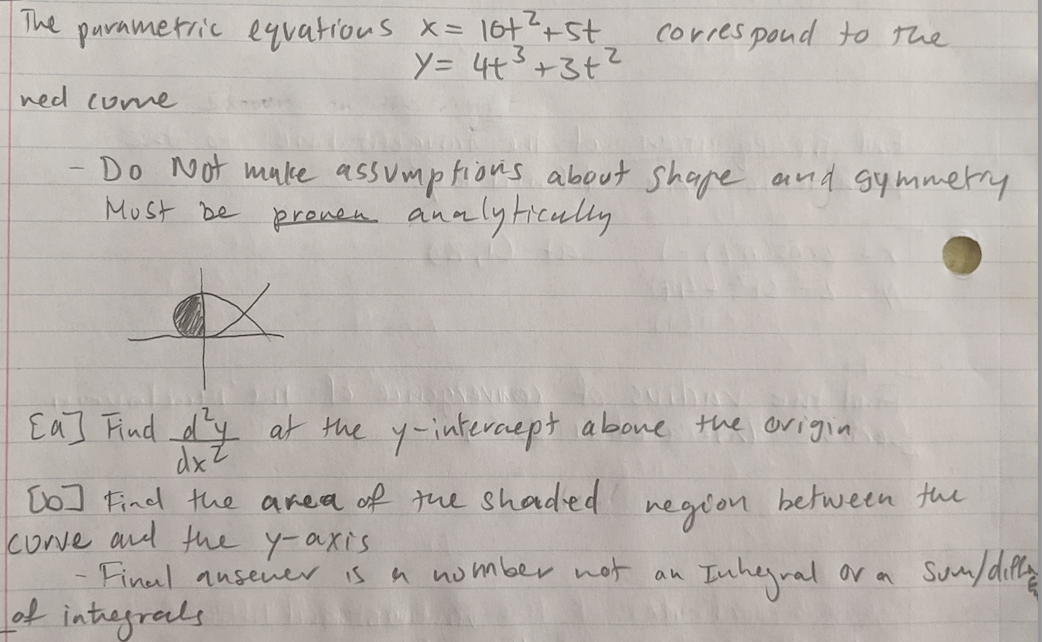 The parametric equations x = 10t²+5t correspond to the
y = 4t³+3t²
red curve
- Do Not make assumptions about shape and symmetry
Must be proven analytically
[a] Find d²y/dx² at the y-intercept above the origin
[b] Find the area of the shaded region between the
curve and the y-axis
- Final ansewer is a number not an Integral or a sum/diff
of integrals